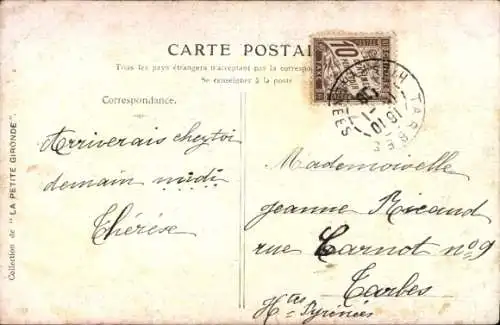 CARTE POSTALE
Tous les pays étrangers n'acceptant pas la correspon
Se renseigner à la poste
Correspondance.
Collection de "LA PETITE GIRONDE".
Arriverais chez toi
demain midi
Thérèse
10
TARBES
Mademoiselle
Jeanne Ricaud
rue Carnot no 9
Tarbes
Htes Pyrénées